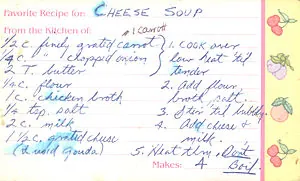 Favorite Recipe for: CHEESE SOUP
From the Kitchen of # 1 carrott
1/2 c. finely grated carrot
1/4 c. " chopped onion
2 T. butter
1/4 c. flour
1 c. chicken broth
1/4 tsp. salt
2 c. milk
1 1/2 c. grated cheese
(I used Gouda)
1. COOK over
low heat 'til
tender
2. Add flour,
broth, salt.
3. Stir 'til bubbly.
4. Add cheese &
milk.
5. Heat thru, Don't
Boil.
Makes: 4